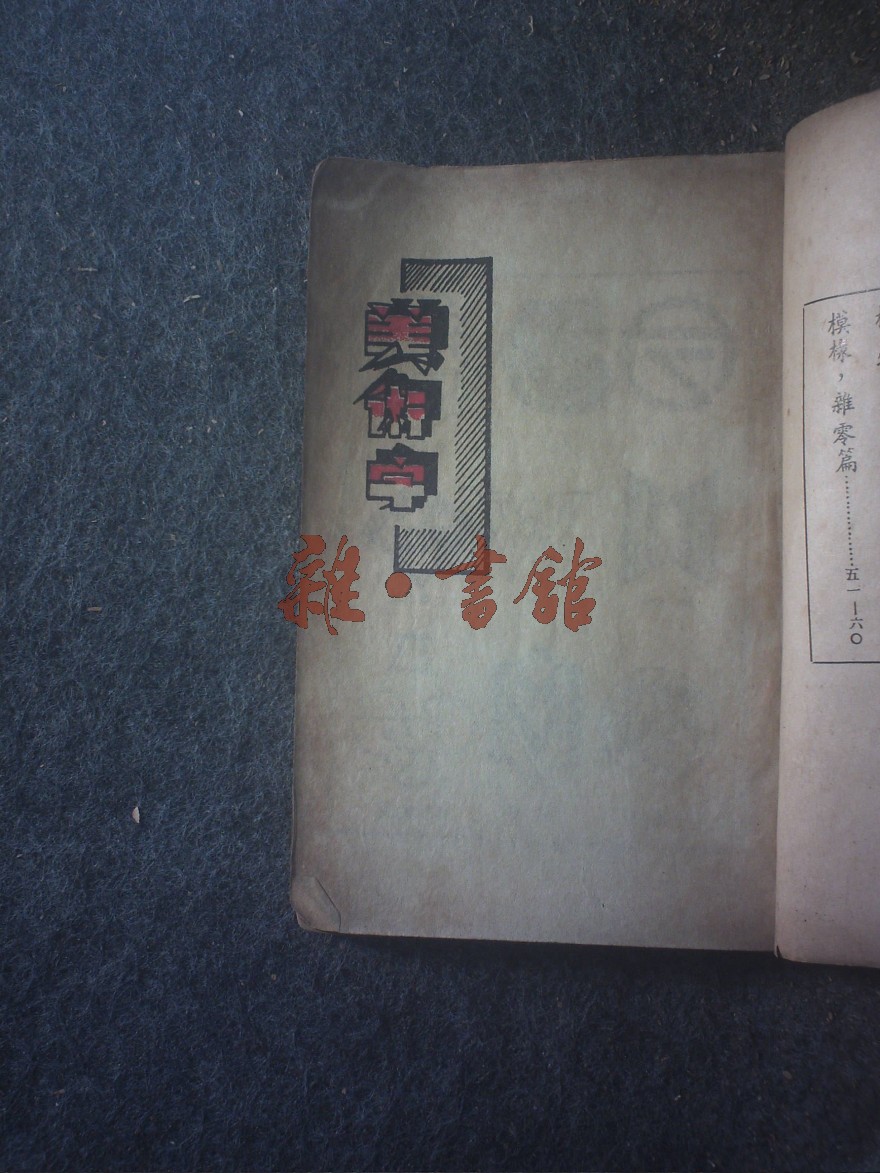 模樣，雜零篇………………五一—六〇
美術字
雜·書館